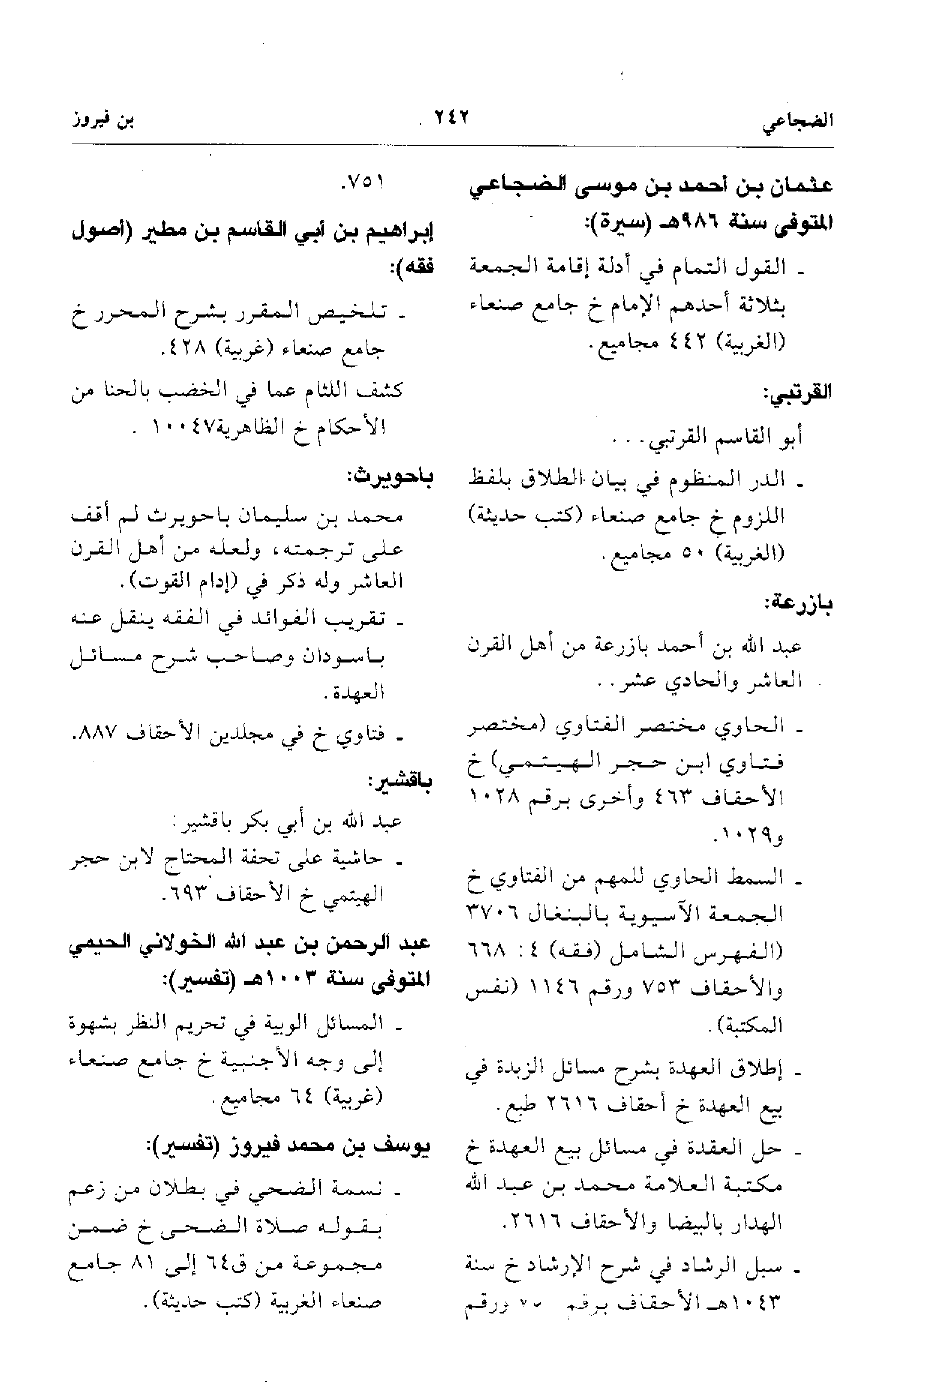 الضجاعي ٢٤٢ بن فيروز
عثمان بن أحمد بن موسى الضجاعي
المتوفى سنة ٩٨٦هـ (سيرة):
ـ القول التمام في أدلة إقامة الجمعة
بثلاثة أحدهم الإمام خ جامع صنعاء
(الغربية) ٤٤٢ مجاميع.
القرتبي:
أبو القاسم القرتبي...
ـ الدر المنظوم في بيان الطلاق بلفظ
اللزوم خ جامع صنعاء (كتب حديثة)
(الغربية) ٥٠ مجاميع.
بازرعة:
عبد الله بن أحمد بازرعة من أهل القرن
العاشر والحادي عشر..
ـ الحاوي مختصر الفتاوي (مختصر
فتاوي ابن حجر الهيتمي) خ
الأحقاف ٤٦٣ وأخرى برقم ١٠٢٨
و١٠٢٩.
ـ السمط الحاوي للمهم من الفتاوي خ
الجمعة الآسيوية بالبنغال ٣٧٠٦
(الفهرس الشامل (فقه) ٤: ٦٦٨
والأحقاف ٧٥٣ ورقم ١١٤٦ (نفس
المكتبة).
ـ إطلاق العهدة بشرح مسائل الزبدة في
بيع العهدة خ أحقاف ٢٦١٦ طبع.
ـ حل العقدة في مسائل بيع العهدة خ
مكتبة العلامة محمد بن عبد الله
الهدار بالبيضا والأحقاف ٢٦١٦.
ـ سبل الرشاد في شرح الإرشاد خ سنة
١٠٤٣هـ الأحقاف برقم ورقم
٧٥١.
إبراهيم بن أبي القاسم بن مطير (أصول
فقه):
ـ تلخيص المقرر بشرح المحرر خ
جامع صنعاء (غربية) ٤٢٨.
كشف اللثام عما في الخضب بالحنا من
الأحكام خ الظاهرية١٠٠٤٧ .
باحويرث:
محمد بن سليمان باحويرث لم أقف
على ترجمته، ولعله من أهل القرن
العاشر وله ذكر في (إدام القوت).
ـ تقريب الفوائد في الفقه ينقل عنه
باسودان وصاحب شرح مسائل
العهدة.
ـ فتاوي خ في مجلدين الأحقاف ٨٨٧.
باقشير:
عبد الله بن أبي بكر باقشير:
ـ حاشية على تحفة المحتاج لابن حجر
الهيتمي خ الأحقاف ٦٩٣.
عبد الرحمن بن عبد الله الخولاني الحيمي
المتوفى سنة ١٠٠٣هـ (تفسير):
ـ المسائل الوبية في تحريم النظر بشهوة
إلى وجه الأجنبية خ جامع صنعاء
(غربية) ٦٤ مجاميع.
يوسف بن محمد فيروز (تفسير):
ـ نسمة الضحي في بطلان من زعم
بقوله صلاة الضحى خ ضمن
مجموعة من ق٦٤ إلى ٨١ جامع
صنعاء الغربية (كتب حديثة).